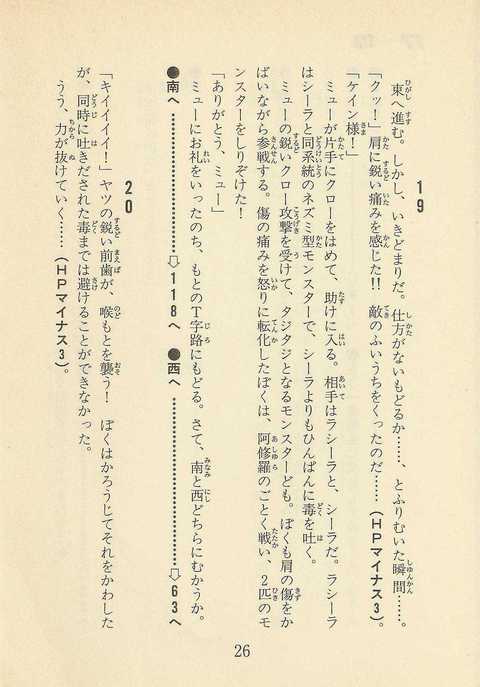 19
東へ進む。しかし、いきどまりだ。仕方がないもどるか……、とふりむいた瞬間……。
「クッ！」肩に鋭い痛みを感じた!!　敵のふいうちをくったのだ……（ＨＰマイナス３）。
「ケイン様！」
ミューが片手にクローをはめて、助けに入る。相手はラシーラと、シーラだ。ラシーラ
はシーラと同系統のネズミ型モンスターで、シーラよりもひんぱんに毒を吐く。
ミューの鋭いクロー攻撃を受けて、タジタジとなるモンスターども。ぼくも肩の傷をか
ばいながら参戦する。傷の痛みを怒りに転化したぼくは、阿修羅のごとく戦い、２匹のモ
ンスターをしりぞけた！
「ありがとう、ミュー」
ミューにお礼をいったのち、もとのＴ字路にもどる。さて、南と西どちらにむかうか。
●南へ……………⇨118へ　●西へ……………⇨63へ
20
「キイイイイ！」ヤツの鋭い前歯が、喉もとを襲う！　ぼくはかろうじてそれをかわした
が、同時に吐きだされた毒までは避けることができなかった。
うう、力が抜けていく……（ＨＰマイナス３）。
26